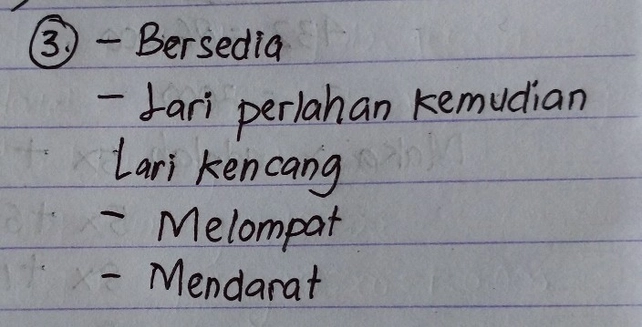 3. - Bersedia
- Lari perlahan kemudian
Lari kencang
- Melompat
- Mendarat